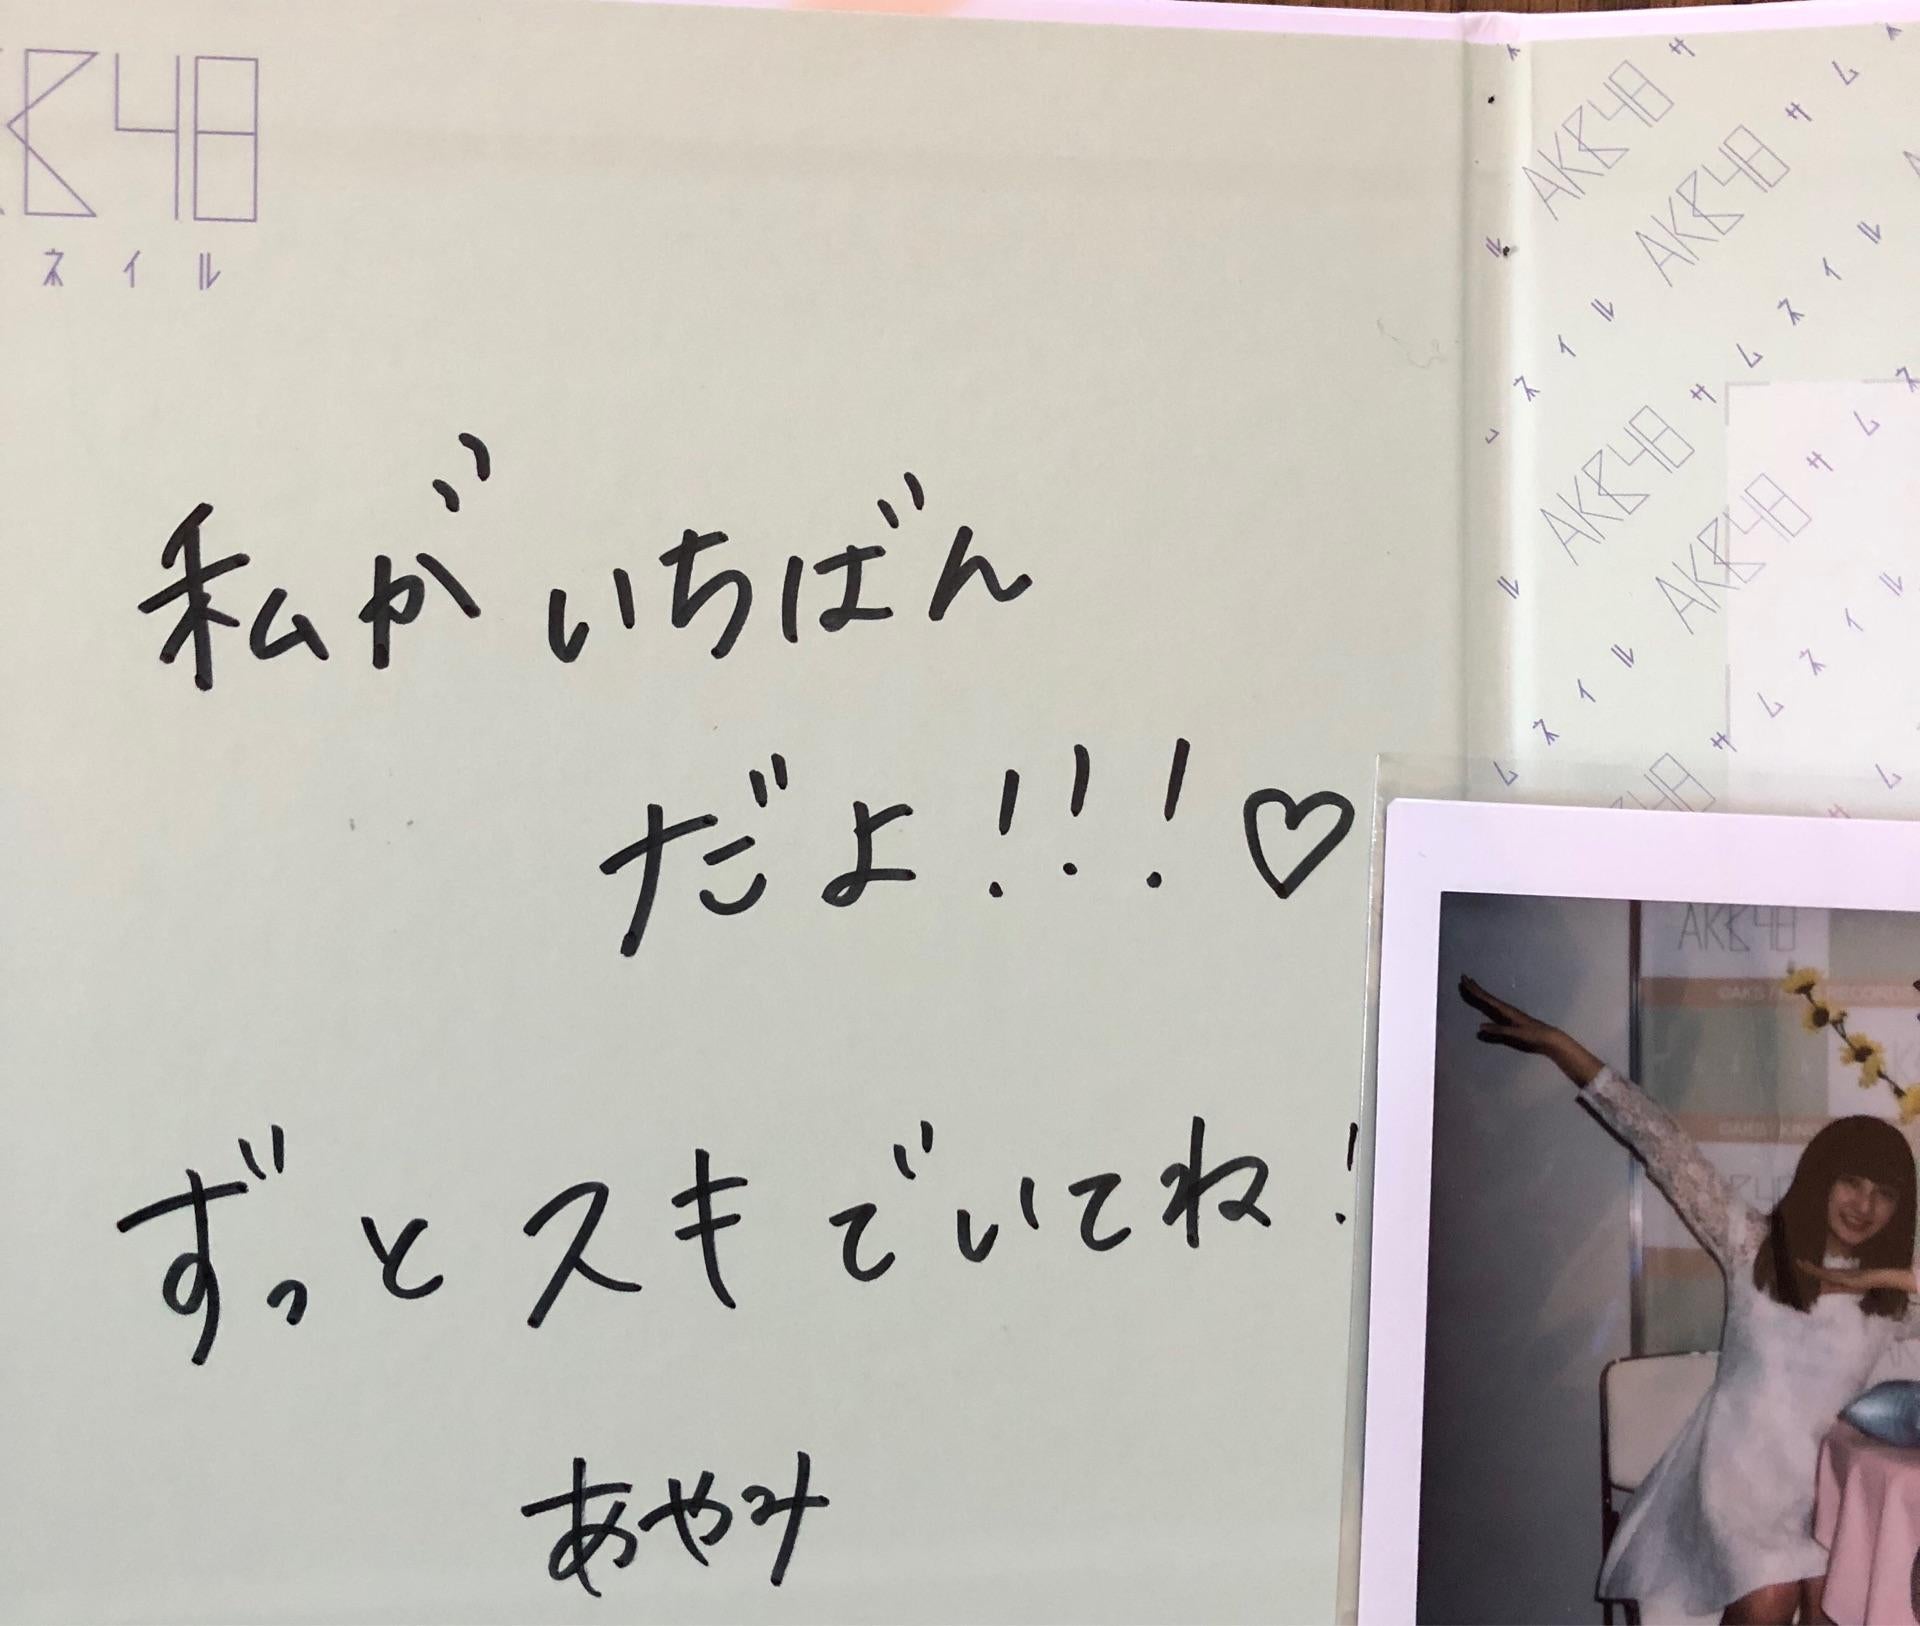 KB48
ネイル
私がいちばん
だよ!!!♡
ずっとスキでいてね!
あやみ
AKB48 サムネイル
AKB48 サムネイル
AKB48 サムネイル
AKB48 サムネイル
AKB48